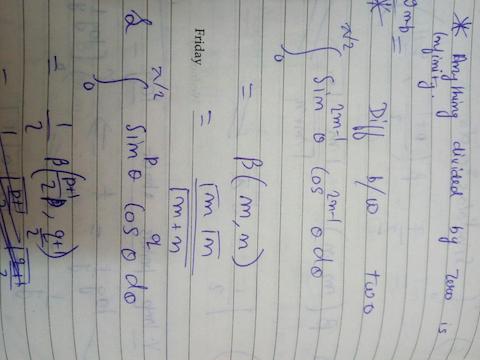 * Anything divided by zero is
infinity.
gmb =
* Diff b/w two
∫₀^(π/2) Sin^(2m-1) θ Cos^(2n-1) θ dθ
= β(m, n)
= Γm Γn / Γm+n
Friday
& ∫₀^(π/2) Sin^p θ Cos^q θ dθ
= 1/2 β((p+1)/2, (q+1)/2)